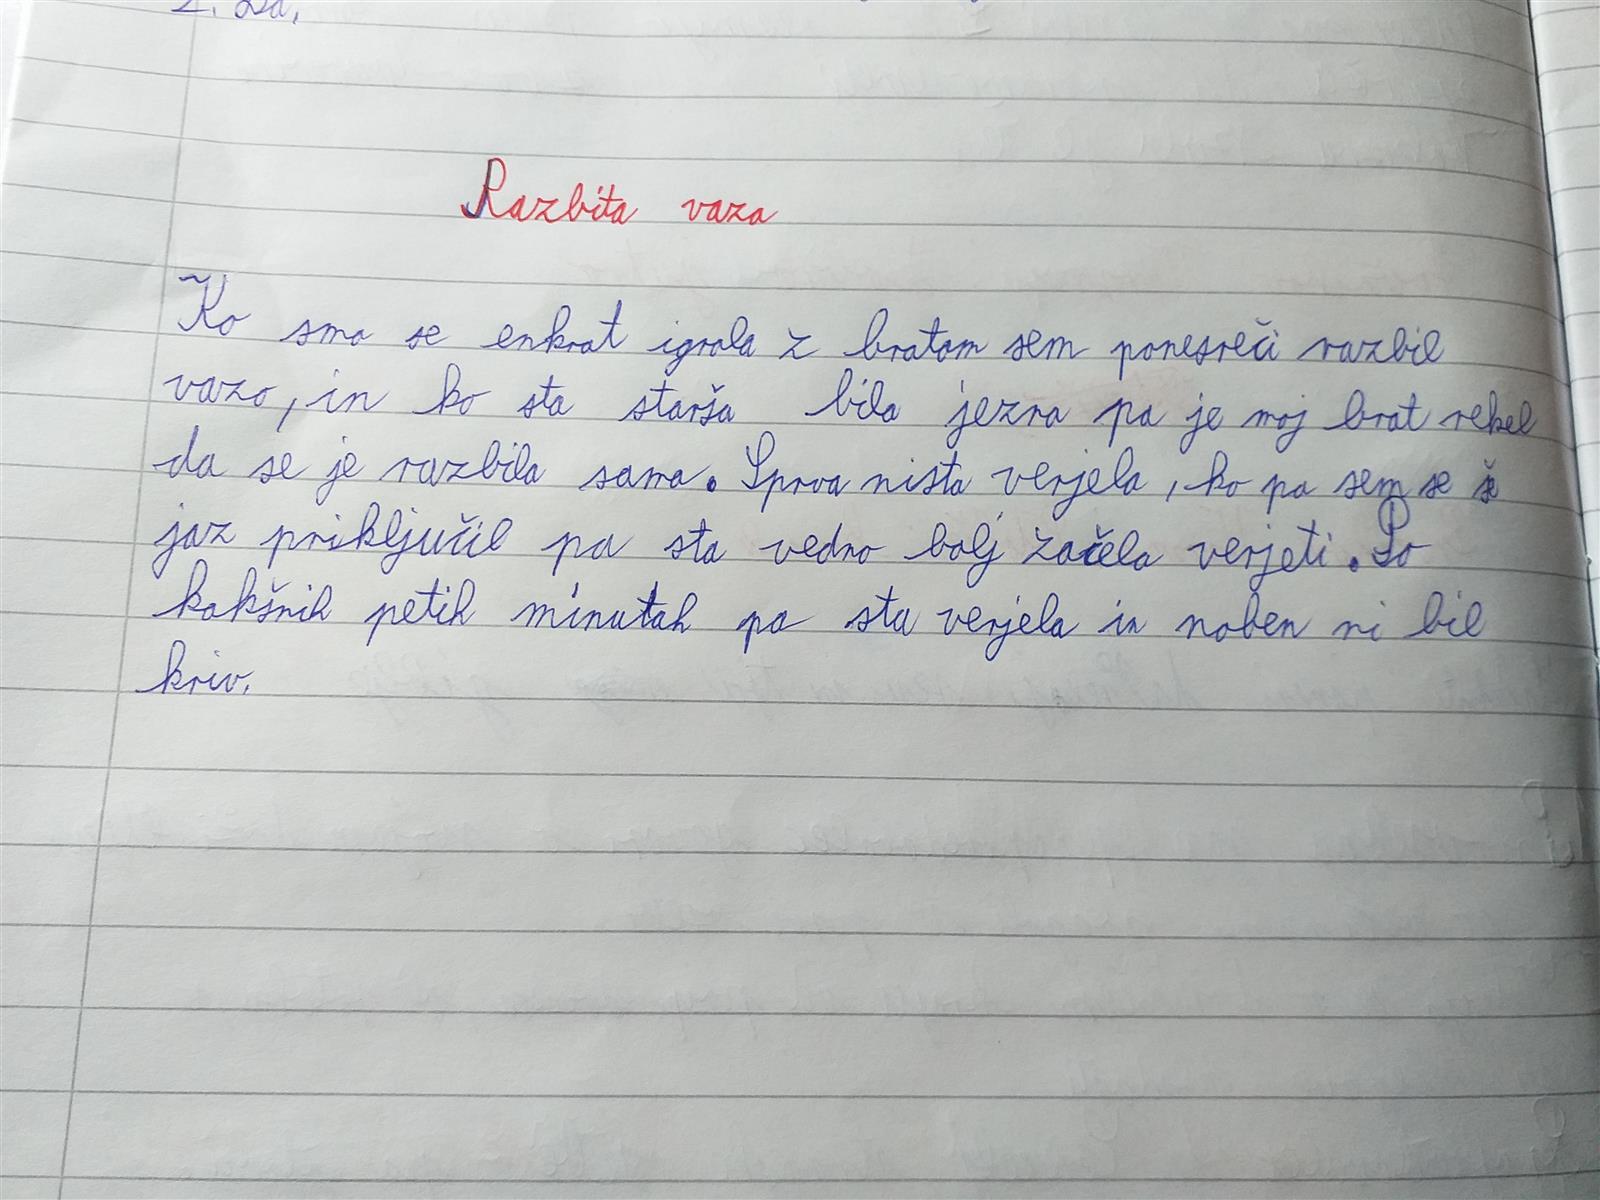 2. Da.
Razbita vaza
Ko smo se enkrat igrala z bratom sem ponesreči razbil
vazo, in ko sta starša bila jezna pa je moj brat rekel
da se je razbila sama. Sprva nista verjela, ko pa sem se še
jaz priključil pa sta vedno bolj začela verjeti. Po
kakšnih petih minutah pa sta verjela in noben ni bil
kriv.